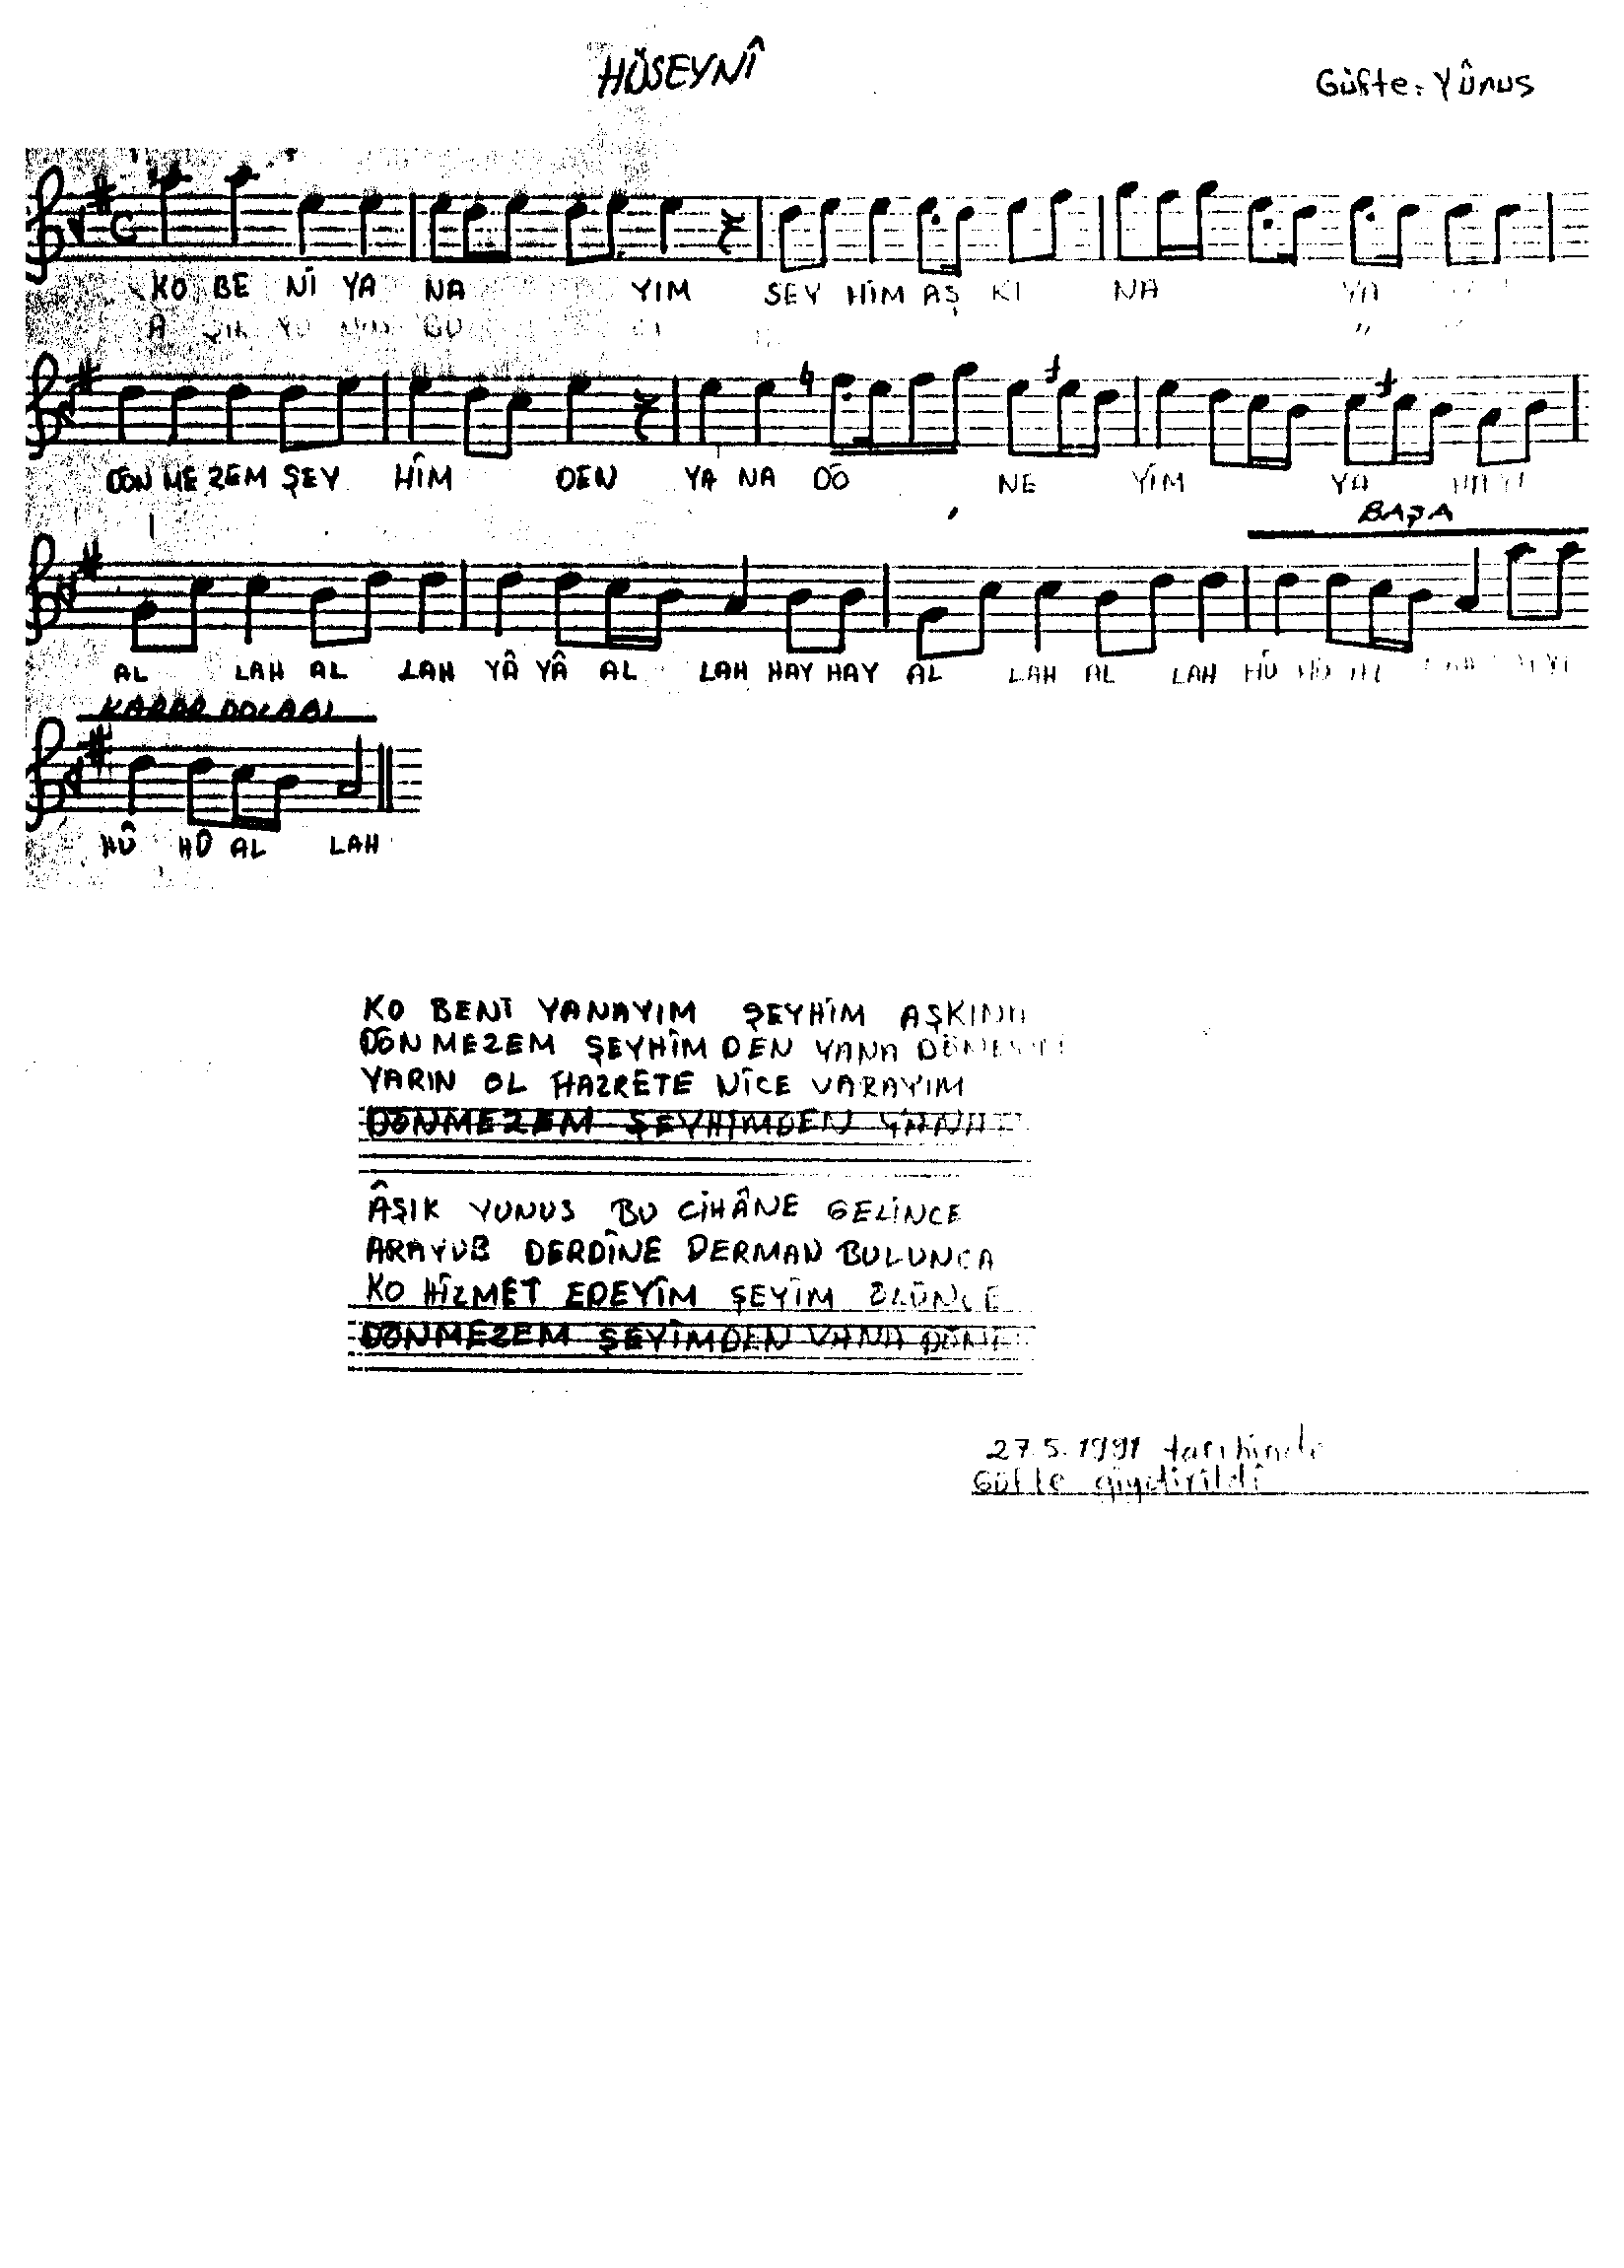 HÜSEYNÎ
Güfte: Yûnus
KO BE NÎ YA NA YIM ŞEY HİM AŞ KI NA YA
DÖN ME ZEM ŞEY HÎM DEN YA NA DÖ NE YİM YA
BAŞA
AL LAH AL LAH YÂ YÂ AL LAH HAY HAY AL LAH AL LAH HÛ HÛ AL
KARAR DOLABI
HÛ HÛ AL LAH
KO BENİ YANAYIM ŞEYHİM AŞKINA
DÖNMEZEM ŞEYHÎMDEN YANA
YARIN OL HAZRETE NİCE VARAYIM
DÖNMEZEM ŞEYHİMDEN YANA
ÂŞIK YUNUS BU CİHÂNE GELİNCE
ARAYUB DERDÎNE DERMAN BULUNCA
KO HİZMET EDEYÎM ŞEYİM ÖLÜNCE
DÖNMEZEM ŞEYÎMDEN YANA
27.5.1991 tarihinde
Güfte giydirildi